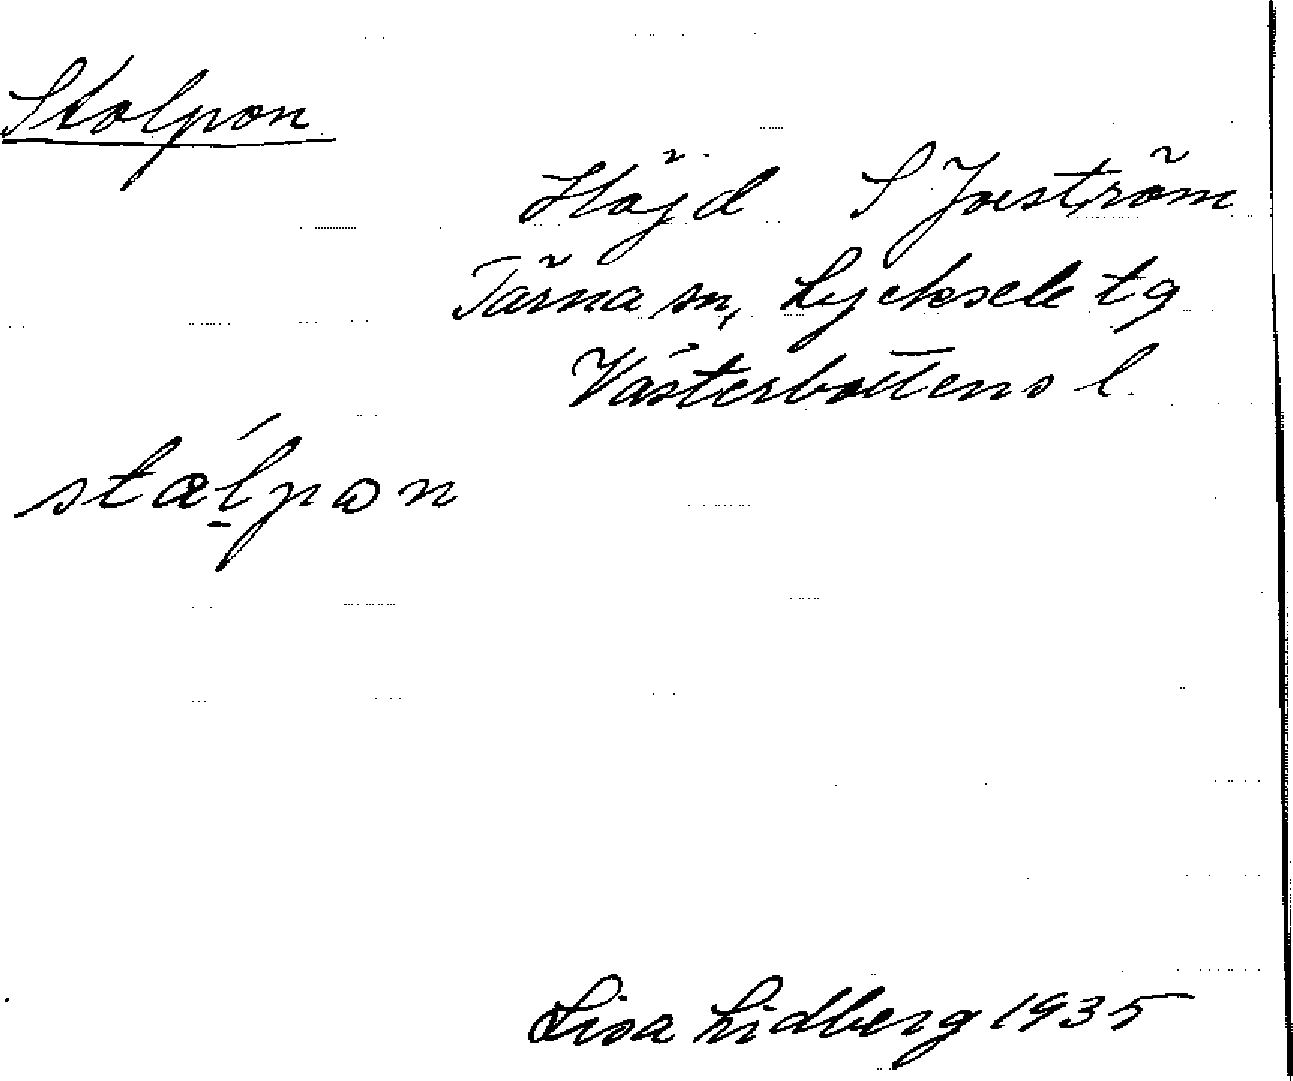 Stolpon
Höjd S Joeström
Tärna sn, Lycksele tg
Västerbottens l.
stælpon
Lisa Lidberg 1935